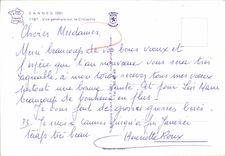 CANNES (06)
1187 - Vue générale sur la Croisette
Chères Mesdames
Merci beaucoup de vos bons vœux et
j'espère que l'an nouveau vous sera très
agréable, à mon tour tous mes vœux
surtout une bonne santé, et pour
beaucoup de bonheur en plus!
Je vous fait de grosses bises
P.S. Je suis à Cannes jusqu'à fin Janvier
temps très beau Henriette Roux